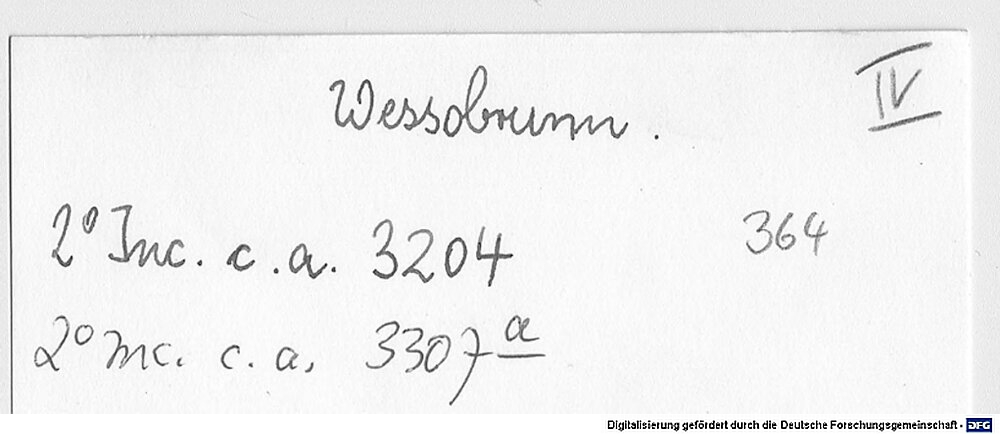 Wessobrunn.
IV
2° Inc. c.a. 3204
364
2° Inc. c.a. 3307 a
Digitalisierung gefördert durch die Deutsche Forschungsgemeinschaft - DFG